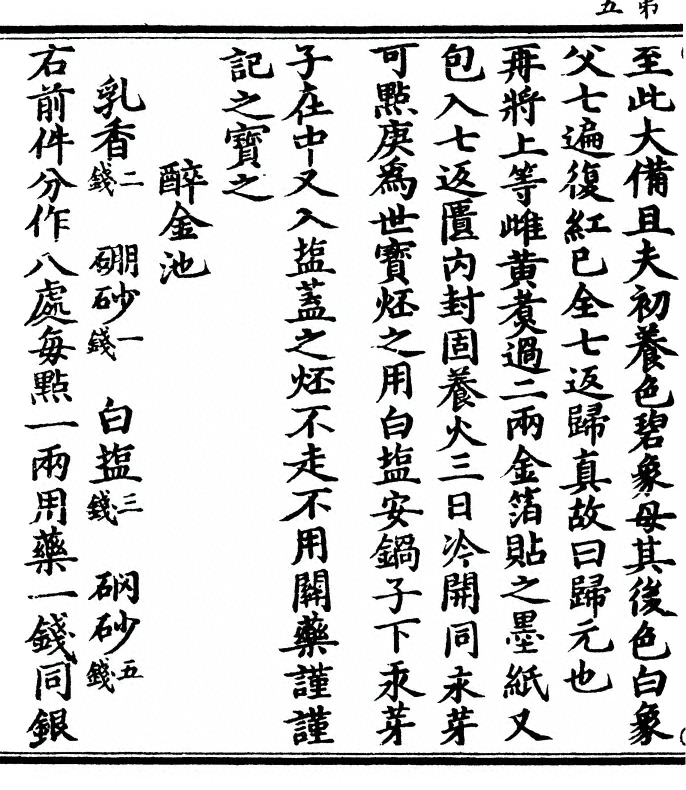 第五
至此大備且夫初養色碧象母其後色白象
父七遍復紅已全七返歸真故曰歸元也
再將上等雌黃煑過二兩金箔貼之墨紙又
包入七返匱內封固養火三日冷開同汞芽
可點庚為世寶炢之用白塩安鍋子下汞芽
子在中又入塩蓋之炢不走不用關藥謹謹
記之寶之
醉金池
乳香二錢 硼砂一錢 白塩三錢 硇砂五錢
右前件分作八處每點一兩用藥一錢同銀